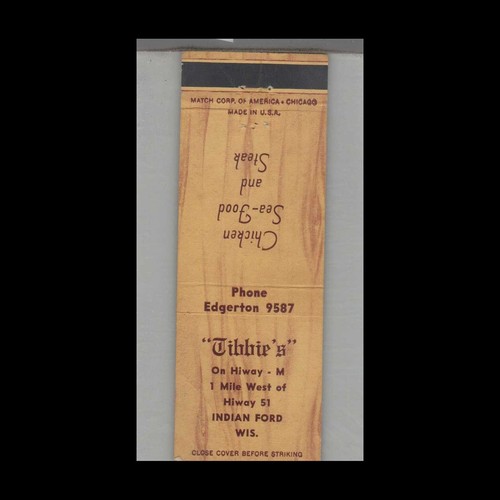 MATCH CORP. OF AMERICA • CHICAGO
MADE IN U.S.A.
Chicken
Sea-Food
and
Steak
Phone
Edgerton 9587
"Tibbie's"
On Hiway - M
1 Mile West of
Hiway 51
INDIAN FORD
WIS.
CLOSE COVER BEFORE STRIKING